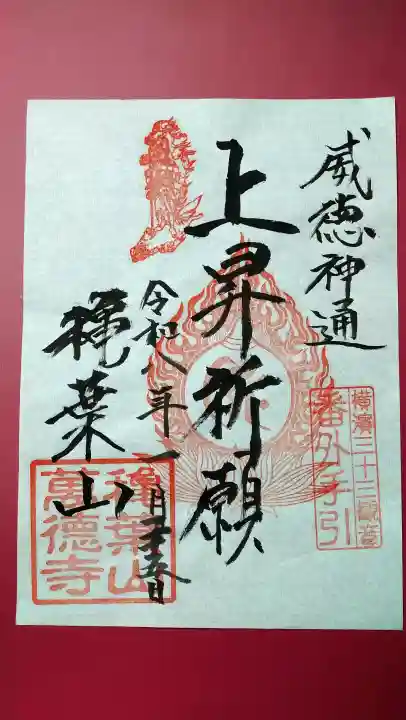 威徳神通
上昇祈願
令和八年一月
葉山
横濱三十三觀音
番外手引
葉山
萬德寺